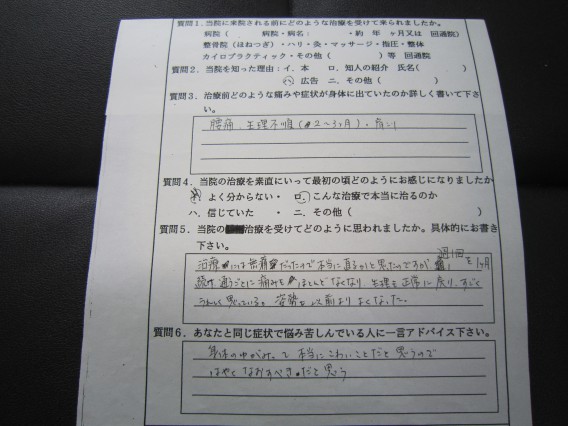 質問1.当院に来院される前にどのような治療を受けて来られましたか。
病院(　　病院・病名:　　　・約　年　ヶ月又は　回通院)
整骨院(ほねつぎ)・ハリ・灸・マッサージ・指圧・整体
カイロプラクティック・その他(　　　　　)等　回通院
質問2.当院を知った理由:イ.本　ロ.知人の紹介　氏名(　　　)
ハ.広告　ニ.その他(　　　　　)
質問3.治療前どのような痛みや症状が身体に出ていたのか詳しく書いて下さ
い。
腰痛、生理不順(2〜3ヶ月)・肩こり
質問4.当院の治療を素直にいって最初の頃どのようにお感じになりましたか
よく分からない・　ロ.こんな治療で本当に治るのか
ハ.信じていた　・　ニ.その他(　　　　　　　)
質問5.当院の治療を受けてどのように思われましたか。具体的にお書き
下さい。
治療は だったので本当に直るの?と思ったのですが 週1回を1ヶ月
通うごとに痛みもほとんどなくなり、生理も正常に戻り、すごく
うれしく思っている。姿勢も以前よりよくなった。
質問6.あなたと同じ症状で悩み苦しんでいる人に一言アドバイス下さい。
身体のゆがみって本当にこわいことだと思うので
はやくなおすべきだと思う